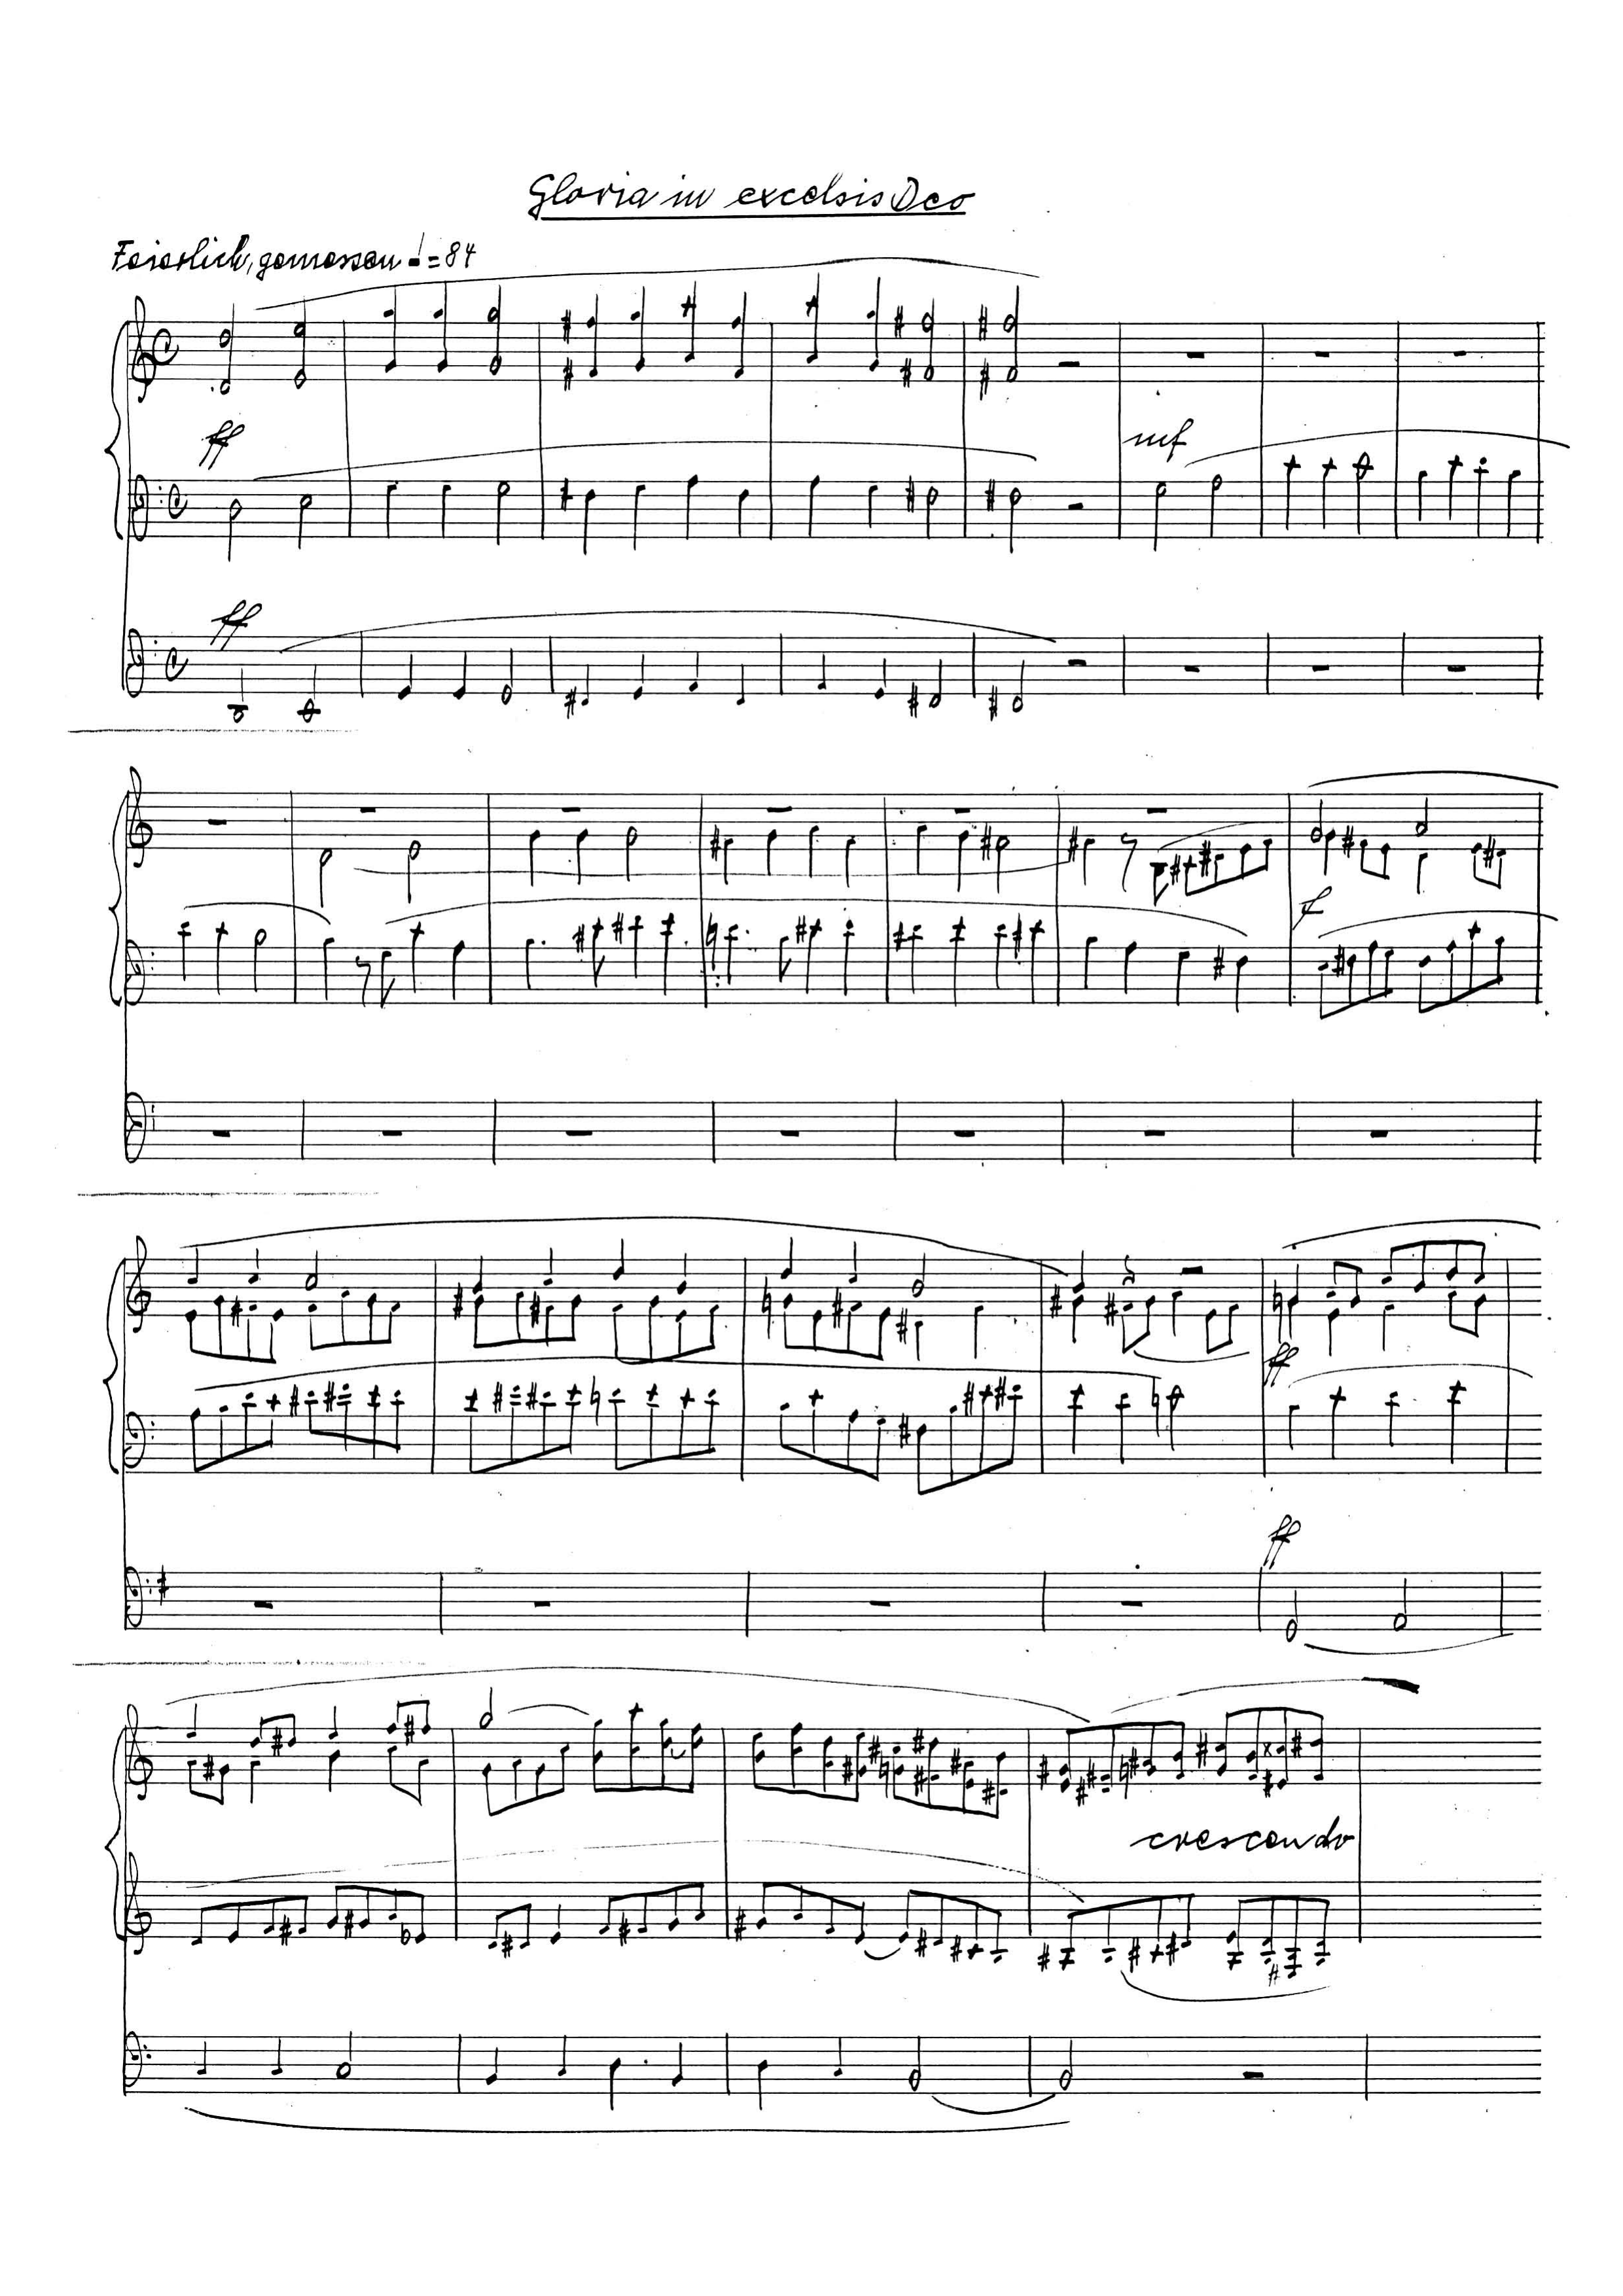 Gloria in excelsis Deo
Feierlich, gemessen ♩=84
ff
mf
ff
f
ff
ff
crescendo